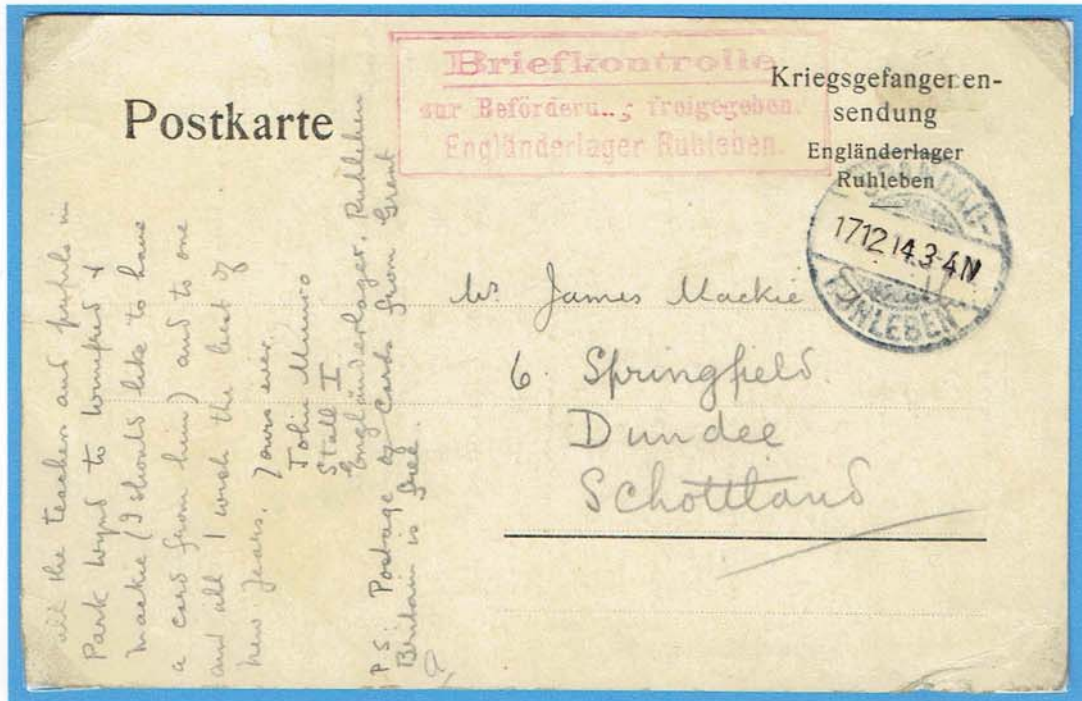 Postkarte
Briefkontrolle
zur Beförderu..g freigegeben.
Engländerlager Ruhleben.
Kriegsgefangenen-
sendung
Engländerlager
Ruhleben
SPANDAU-
17 12 14. 3-4 N
RUHLEBEN
Mr James Mackie
6. Springfield.
Dundee
Schottland
all the teachers and pupils in
Park Wynd to &
Mackie (I should like to have
a card from him) and to one
and all I wish the best of
New Years.
Yours ever.
John Munro
Stall I
Engländerlager. Ruhleben
P.S. Postage of Cards from Great
Britain is free.